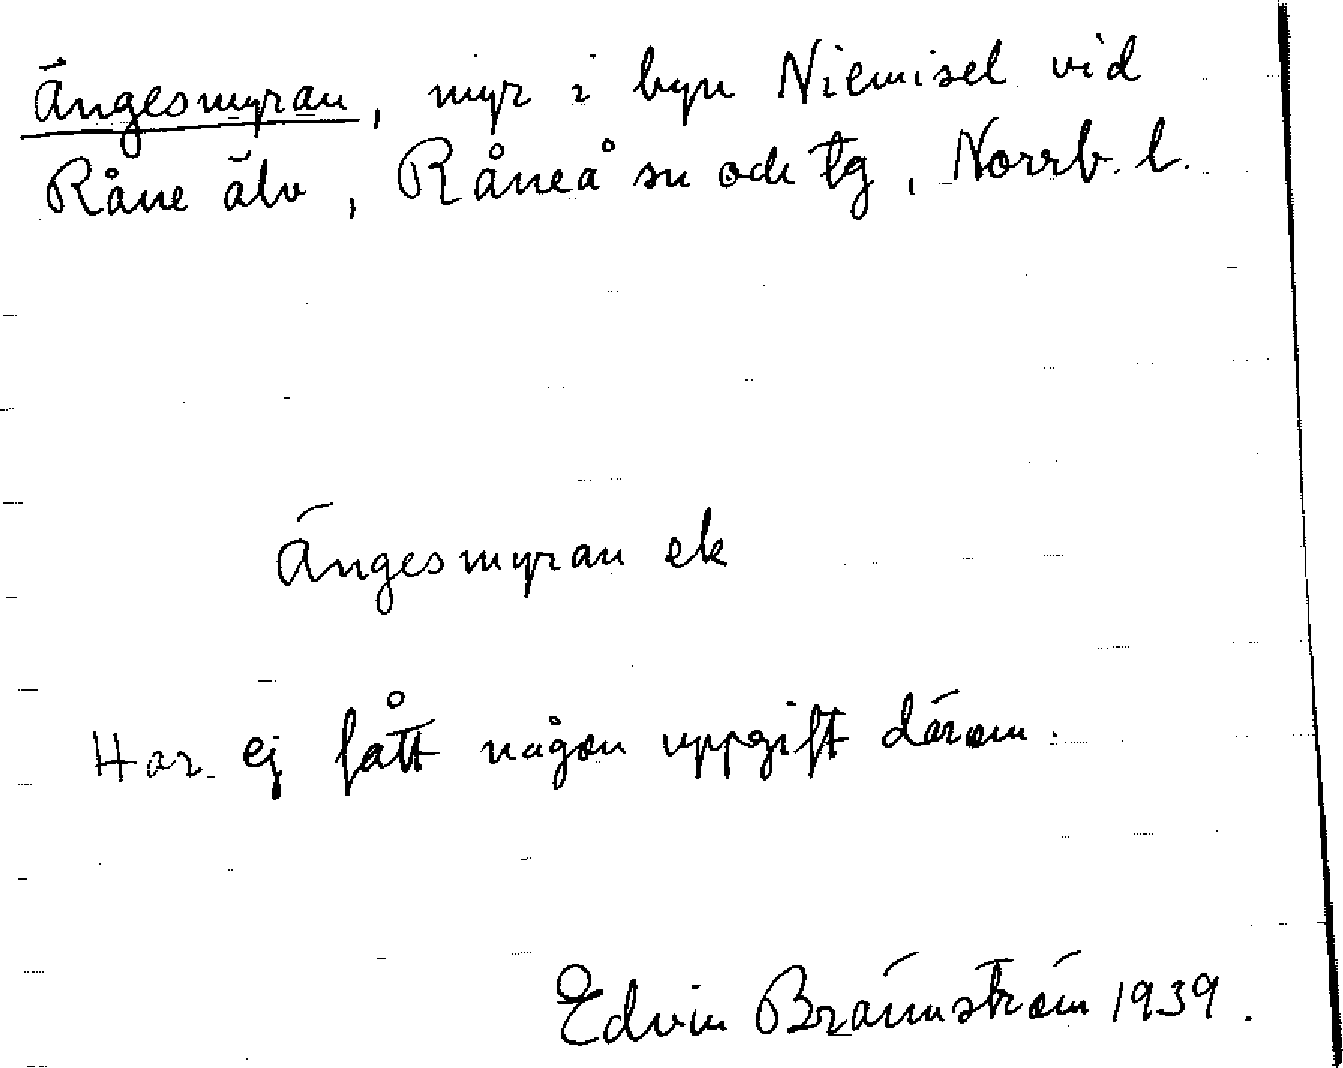 Ängesmyran, myr i byn Niemisel vid
Råne älv, Råneå sn och tg, Norrb. l.
Ängesmyran ek
Har ej fått någon uppgift därom.
Edvin Brännström 1939.